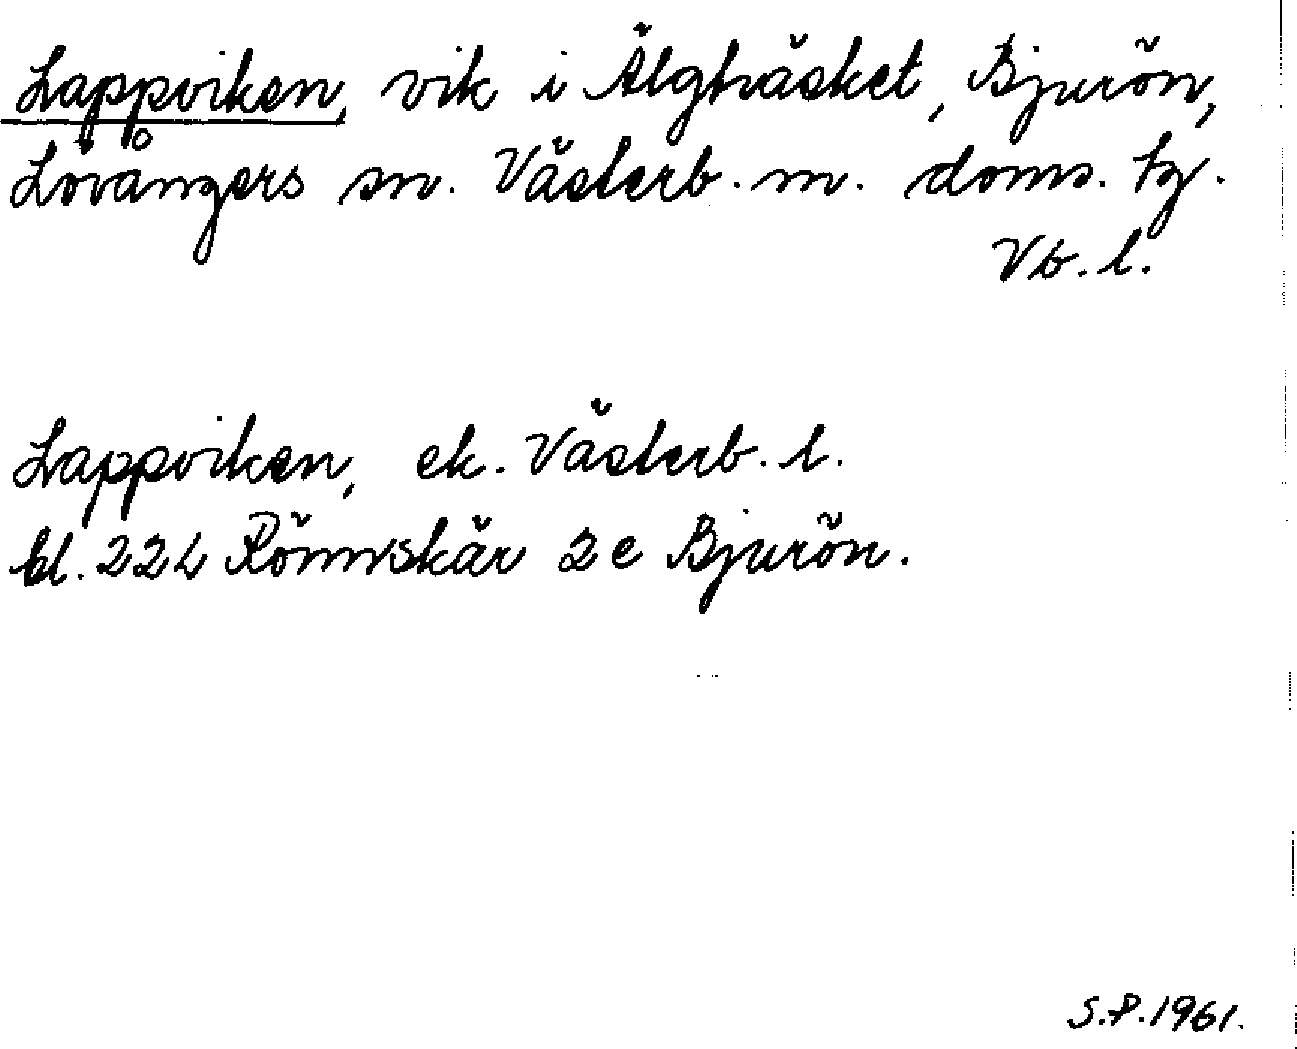 Lappviken, vik i Älgträsket, Bjurön,
Lövångers sn. Västerb. m. doms. tg.
Vb. l.
Lappviken, ek. Västerb. l.
bl. 224 Rönnskär 2 e Bjurön.
S.P. 1961.